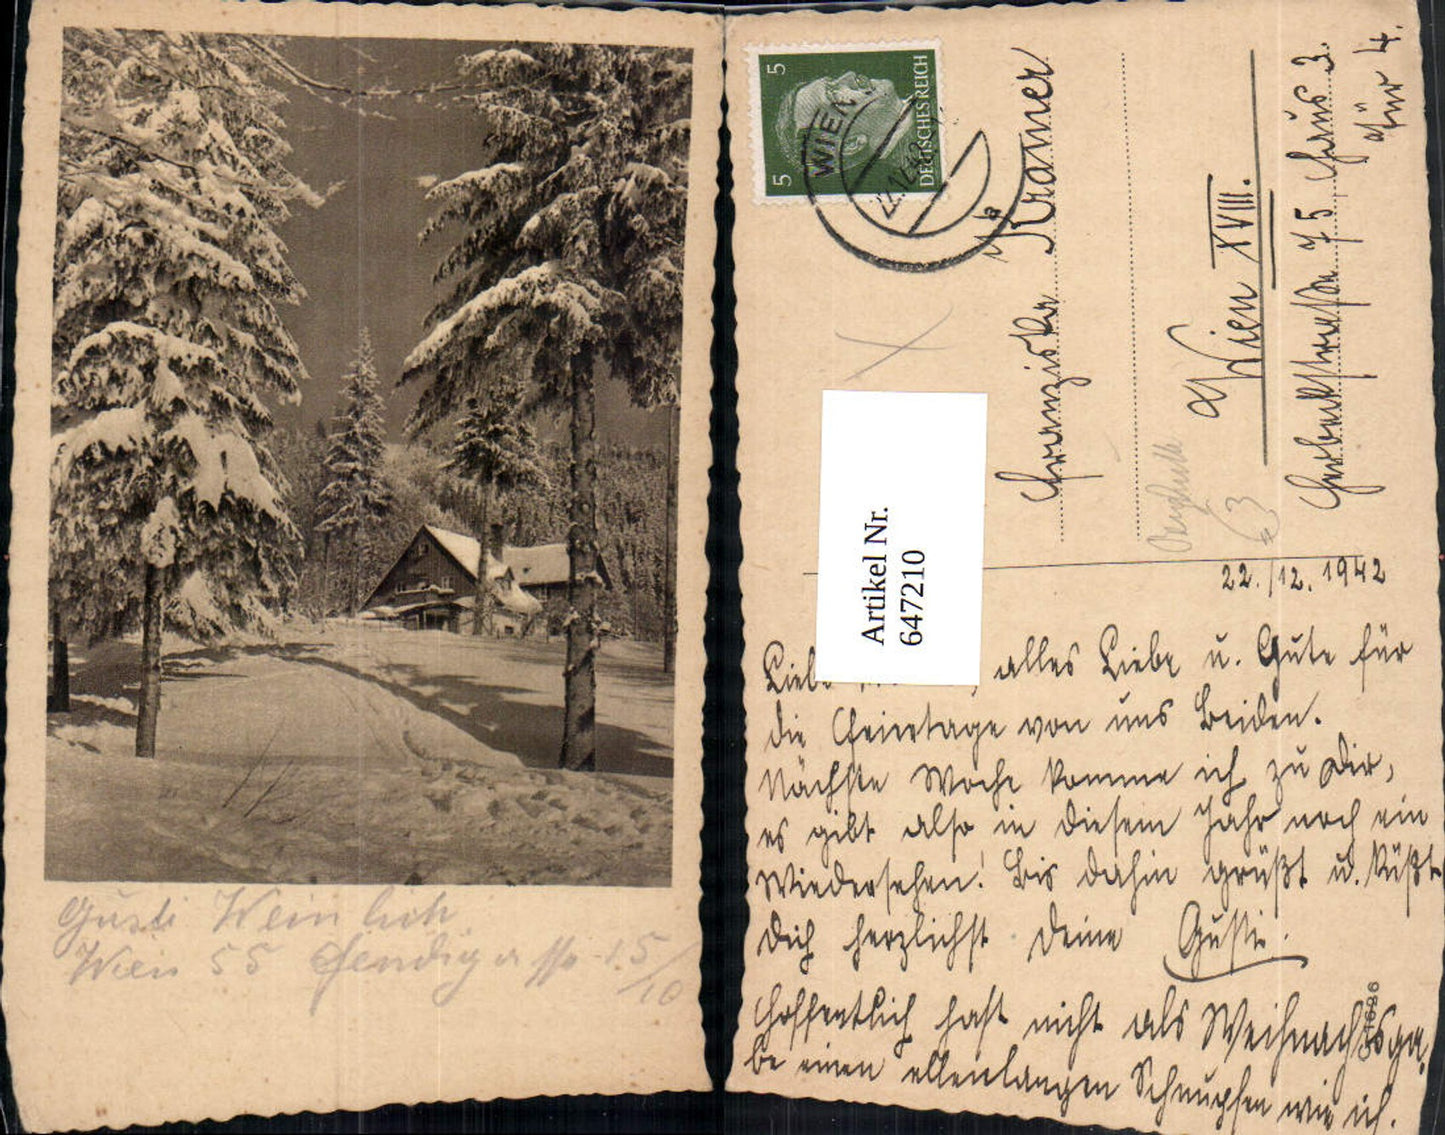 Gusti Weinlich
Wien 55
5 5
DEUTSCHES REICH
WIEN
22.12.42
Franziska Kramer
Wien XVIII.
Herbeckstraße 75 Haus 3.
Tür 4.
Artikel Nr.
647210
22./12. 1942
Liebe , alles Liebe u. Gute für
die Feiertage von uns Beiden.
Nächste Woche komme ich zu Dir,
es gibt also in diesem Jahr noch ein
Wiedersehen! Bis dahin grüßt u. küßt
Dich herzlichst Deine Gusti.
Hoffentlich hast nicht als Weihnachtsga-
be einen ellenlangen Schnupfen wie ich.